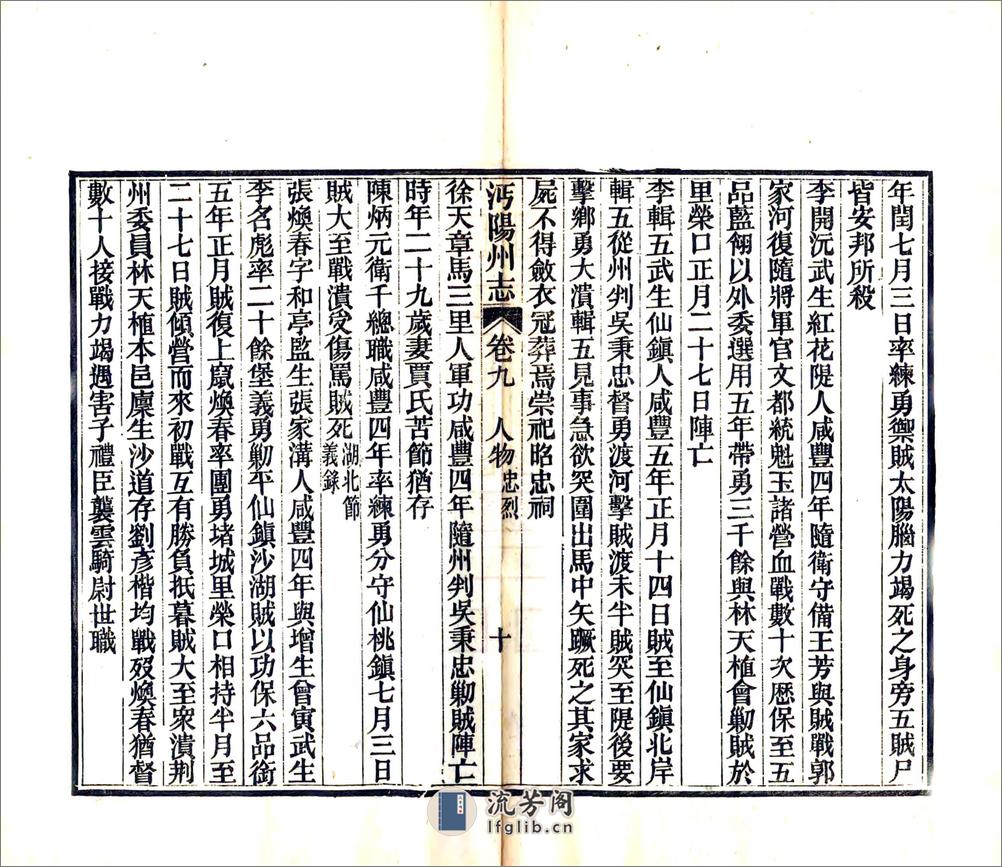 年閏七月三日率練勇禦賊太陽腦力竭死之身旁五賊尸
皆安邦所殺
李開沅武生紅花隄人咸豐四年隨衛守備王芳與賊戰郭
家河復隨將軍官文都統魁玉諸營血戰數十次歷保至五
品藍翎以外委選用五年帶勇三千餘與林天植會勦賊於
里榮口正月二十七日陣亡
李輯五武生仙鎮人咸豐五年正月十四日賊至仙鎮北岸
輯五從州判吳秉忠督勇渡河擊賊渡未半賊突至隄後要
擊鄉勇大潰輯五見事急欲突圍出馬中矢蹶死之其家求
屍不得斂衣冠葬焉崇祀昭忠祠
沔陽州志 卷九 人物 忠烈 十
徐天章馬三里人軍功咸豐四年隨州判吳秉忠勦賊陣亡
時年二十九歲妻賈氏苦節猶存
陳炳元衛千總職咸豐四年率練勇分守仙桃鎮七月三日
賊大至戰潰受傷罵賊死 湖北節義錄
張煥春字和亭監生張家溝人咸豐四年與增生曾寅武生
李名彪率二十餘堡義勇勦平仙鎮沙湖賊以功保六品銜
五年正月賊復上竄煥春率團勇堵城里榮口相持半月至
二十七日賊傾營而來初戰互有勝負抵暮賊大至眾潰荆
州委員林天植本邑廩生沙道存劉彥楷均戰歿煥春猶督
數十人接戰力竭遇害子禮臣襲雲騎尉世職
流芳閣
lfglib.cn